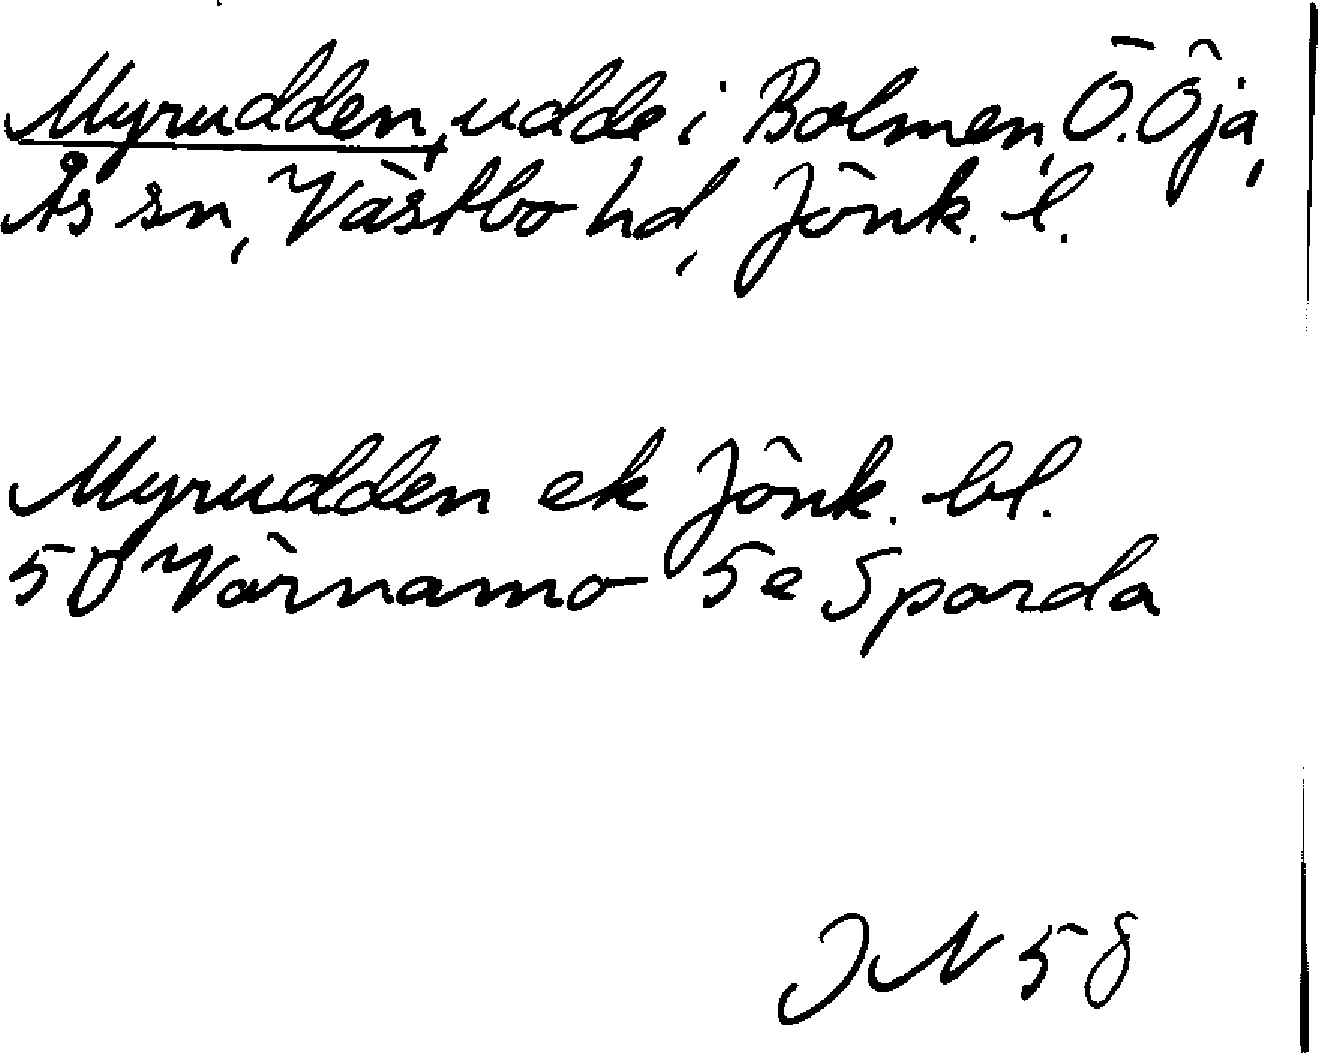 Myrudden, udde i Bolmen, Ö. Öja,
Ås sn, Västbo hd, Jönk. l.
Myrudden ek Jönk. bl.
5D Värnamo 5e Sporda
JN 58